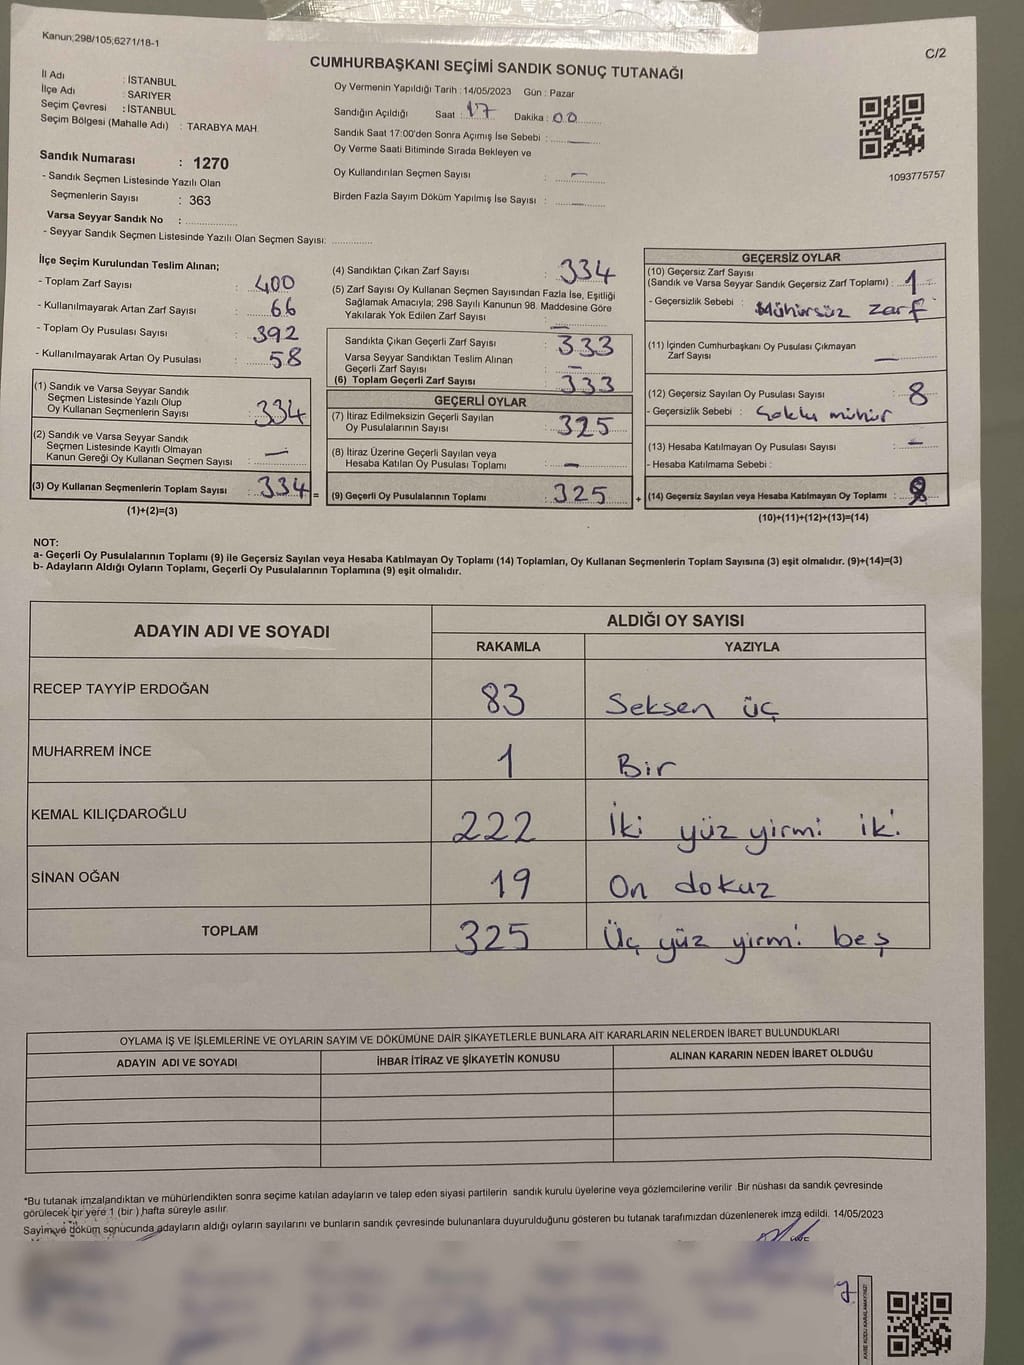 Kanun;298/105;6271/18-1
C/2
CUMHURBAŞKANI SEÇİMİ SANDIK SONUÇ TUTANAĞI
İl Adı : İSTANBUL
İlçe Adı : SARIYER
Seçim Çevresi : İSTANBUL
Seçim Bölgesi (Mahalle Adı) : TARABYA MAH.
Sandık Numarası : 1270
- Sandık Seçmen Listesinde Yazılı Olan
Seçmenlerin Sayısı : 363
Varsa Seyyar Sandık No :
- Seyyar Sandık Seçmen Listesinde Yazılı Olan Seçmen Sayısı:
Oy Vermenin Yapıldığı Tarih : 14/05/2023 Gün : Pazar
Sandığın Açıldığı Saat : 17 Dakika : 00
Sandık Saat 17:00'den Sonra Açımış İse Sebebi : —
Oy Verme Saati Bitiminde Sırada Bekleyen ve
Oy Kullandırılan Seçmen Sayısı : —
Birden Fazla Sayım Döküm Yapılmış İse Sayısı : —
1093775757
İlçe Seçim Kurulundan Teslim Alınan;
- Toplam Zarf Sayısı : 400
- Kullanılmayarak Artan Zarf Sayısı : 66
- Toplam Oy Pusulası Sayısı : 392
- Kullanılmayarak Artan Oy Pusulası : 58
(1) Sandık ve Varsa Seyyar Sandık
Seçmen Listesinde Yazılı Olup
Oy Kullanan Seçmenlerin Sayısı : 334
(2) Sandık ve Varsa Seyyar Sandık
Seçmen Listesinde Kayıtlı Olmayan
Kanun Gereği Oy Kullanan Seçmen Sayısı : —
(3) Oy Kullanan Seçmenlerin Toplam Sayısı : 334 =
(1)+(2)=(3)
(4) Sandıktan Çıkan Zarf Sayısı : 334
(5) Zarf Sayısı Oy Kullanan Seçmen Sayısından Fazla İse, Eşitliği
Sağlamak Amacıyla; 298 Sayılı Kanunun 98. Maddesine Göre
Yakılarak Yok Edilen Zarf Sayısı : —
Sandıkta Çıkan Geçerli Zarf Sayısı : 333
Varsa Seyyar Sandıktan Teslim Alınan
Geçerli Zarf Sayısı : —
(6) Toplam Geçerli Zarf Sayısı : 333
GEÇERLİ OYLAR
(7) İtiraz Edilmeksizin Geçerli Sayılan
Oy Pusulalarının Sayısı : 325
(8) İtiraz Üzerine Geçerli Sayılan veya
Hesaba Katılan Oy Pusulası Toplamı : —
(9) Geçerli Oy Pusulalarının Toplamı : 325 +
GEÇERSİZ OYLAR
(10) Geçersiz Zarf Sayısı
(Sandık ve Varsa Seyyar Sandık Geçersiz Zarf Toplamı) : 1
- Geçersizlik Sebebi : Mühürsüz zarf
(11) İçinden Cumhurbaşkanı Oy Pusulası Çıkmayan
Zarf Sayısı : —
(12) Geçersiz Sayılan Oy Pusulası Sayısı : 8
- Geçersizlik Sebebi : Çoklu mühür
(13) Hesaba Katılmayan Oy Pusulası Sayısı : —
- Hesaba Katılmama Sebebi :
(14) Geçersiz Sayılan veya Hesaba Katılmayan Oy Toplamı : 9
(10)+(11)+(12)+(13)=(14)
NOT:
a- Geçerli Oy Pusulalarının Toplamı (9) ile Geçersiz Sayılan veya Hesaba Katılmayan Oy Toplamı (14) Toplamları, Oy Kullanan Seçmenlerin Toplam Sayısına (3) eşit olmalıdır. (9)+(14)=(3)
b- Adayların Aldığı Oyların Toplamı, Geçerli Oy Pusulalarının Toplamına (9) eşit olmalıdır.
ADAYIN ADI VE SOYADI
ALDIĞI OY SAYISI
RAKAMLA YAZIYLA
RECEP TAYYİP ERDOĞAN 83 Seksen üç
MUHARREM İNCE 1 Bir
KEMAL KILIÇDAROĞLU 222 İki yüz yirmi iki
SİNAN OĞAN 19 On dokuz
TOPLAM 325 Üç yüz yirmi beş
OYLAMA İŞ VE İŞLEMLERİNE VE OYLARIN SAYIM VE DÖKÜMÜNE DAİR ŞİKAYETLERLE BUNLARA AİT KARARLARIN NELERDEN İBARET BULUNDUKLARI
ADAYIN ADI VE SOYADI İHBAR İTİRAZ VE ŞİKAYETİN KONUSU ALINAN KARARIN NEDEN İBARET OLDUĞU
*Bu tutanak imzalandıktan ve mühürlendikten sonra seçime katılan adayların ve talep eden siyasi partilerin sandık kurulu üyelerine veya gözlemcilerine verilir .Bir nüshası da sandık çevresinde
görülecek bir yere 1 (bir ) hafta süreyle asılır.
Sayim ve döküm sonucunda adayların aldığı oyların sayılarını ve bunların sandık çevresinde bulunanlara duyurulduğunu gösteren bu tutanak tarafımızdan düzenlenerek imza edildi. 14/05/2023
KARE KODU KARALAMAYINIZ!